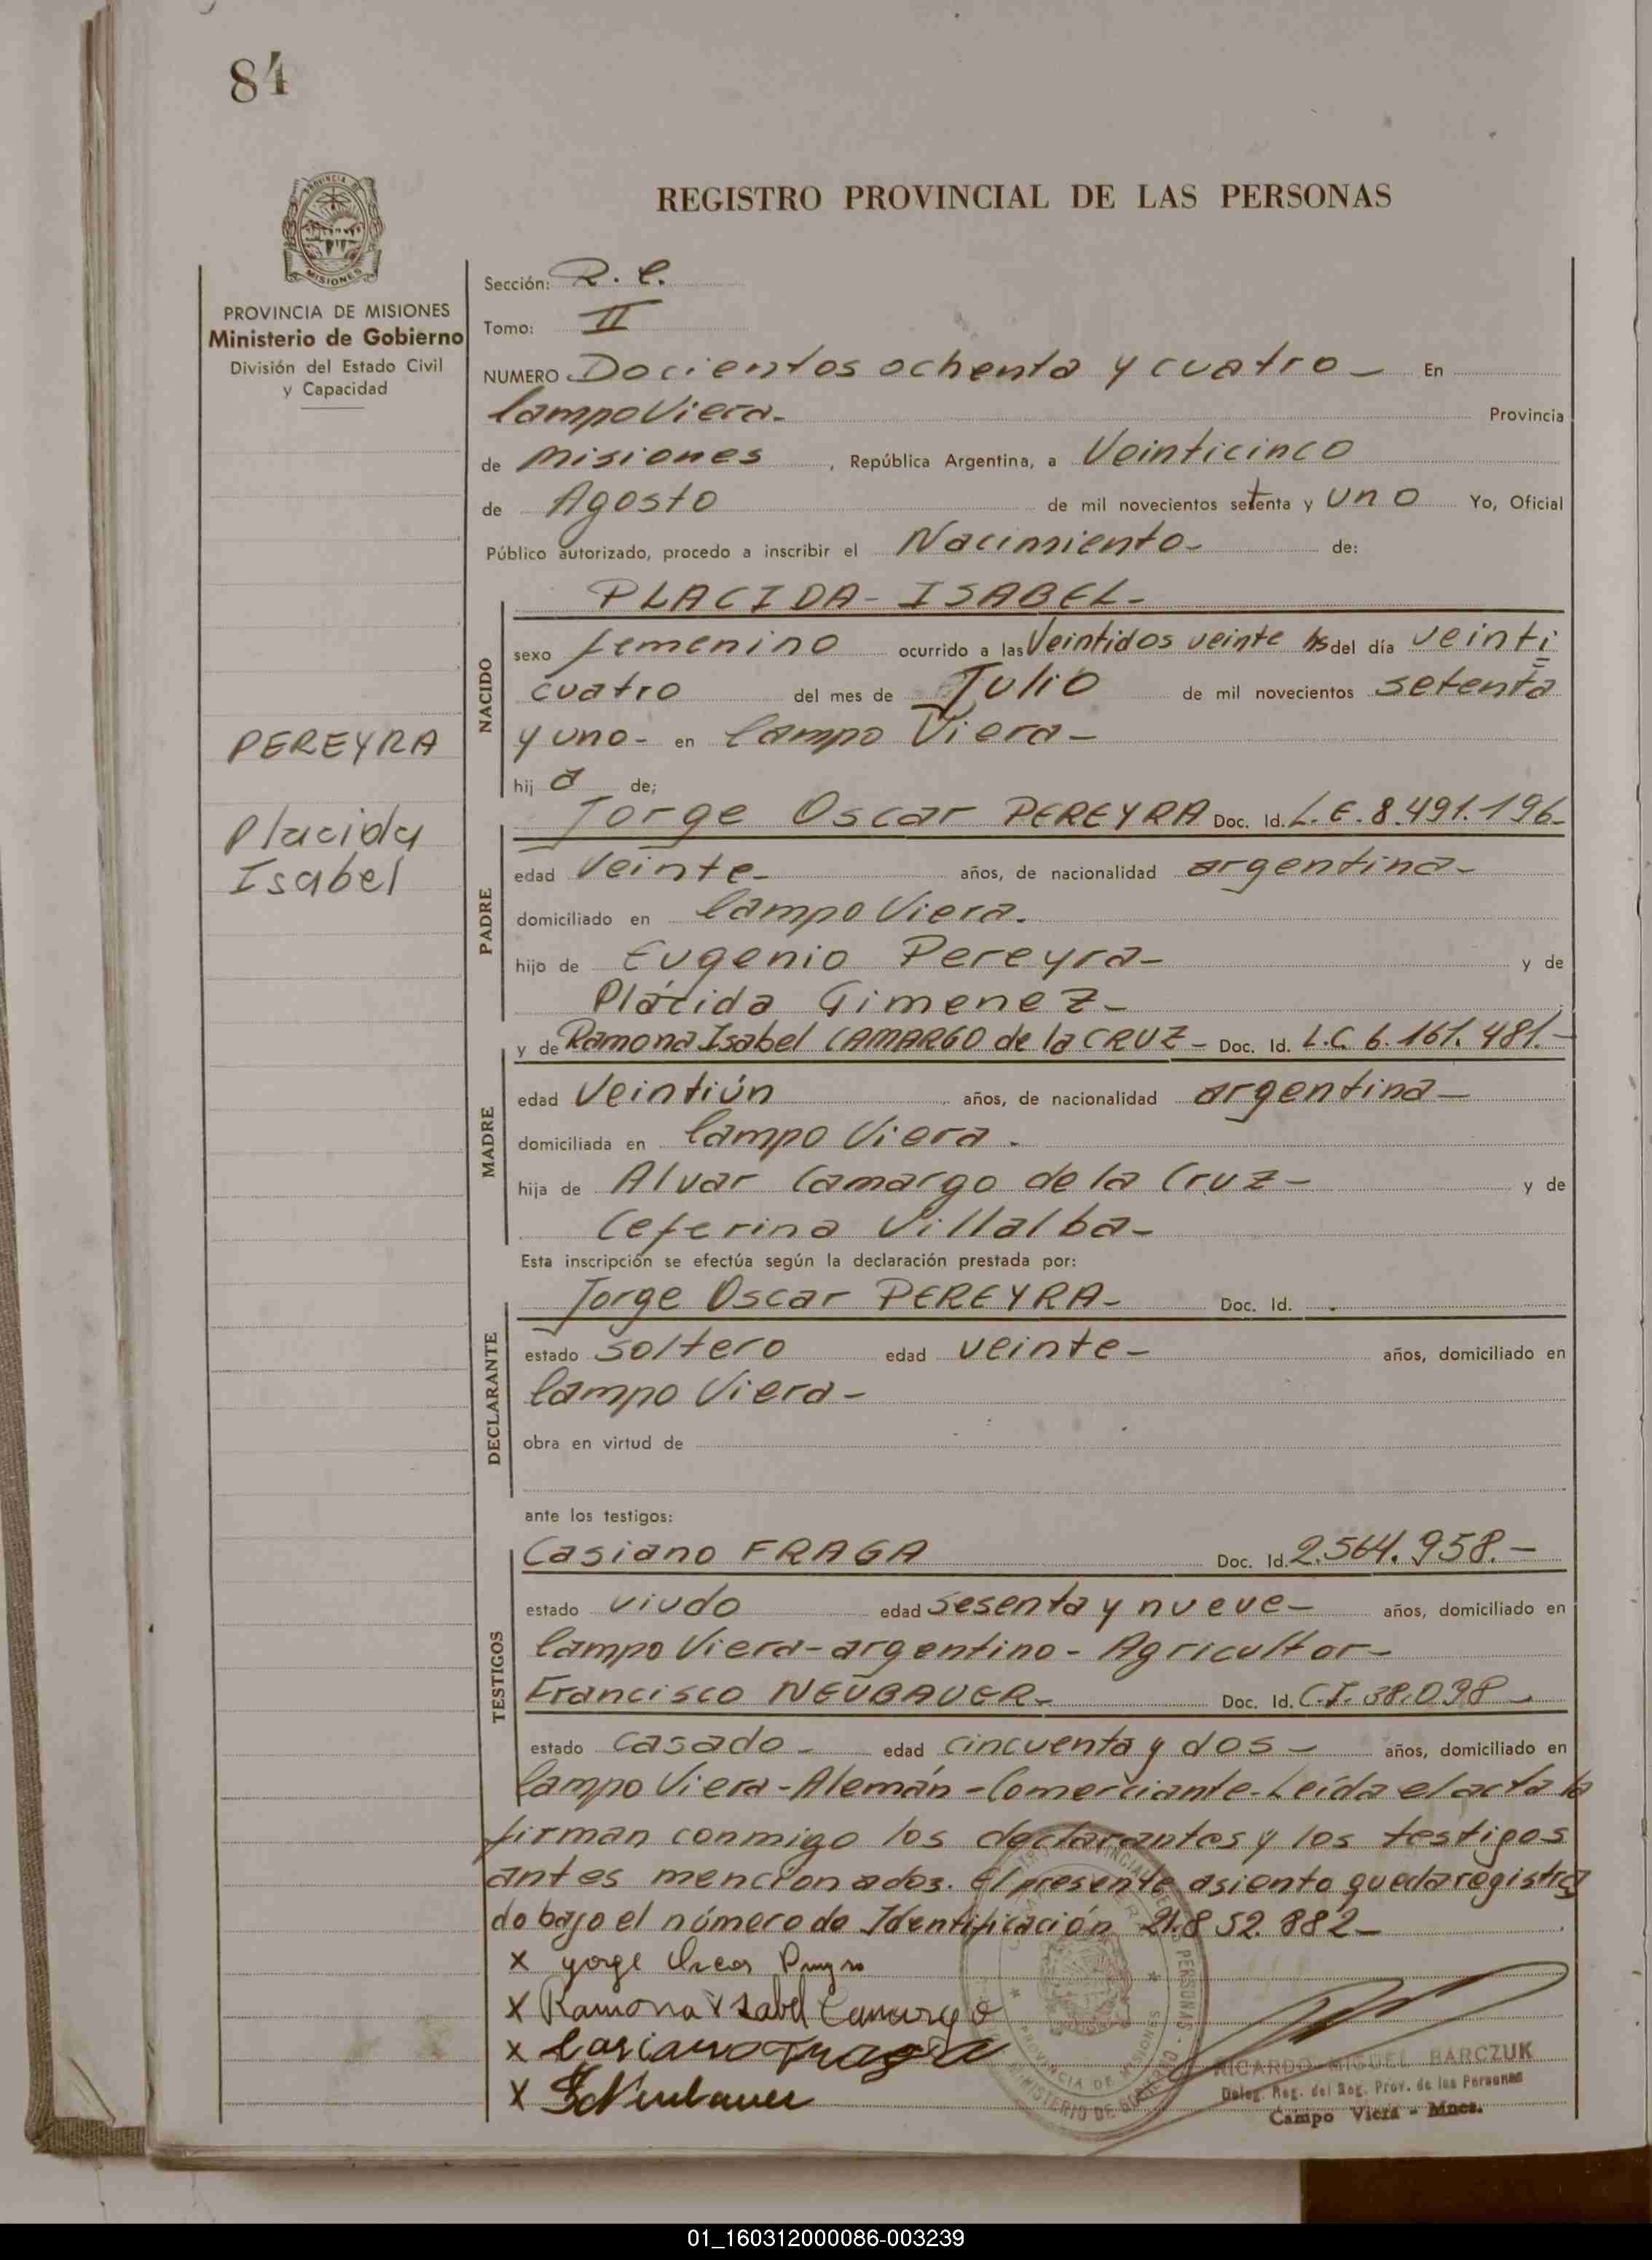 84
REGISTRO PROVINCIAL DE LAS PERSONAS
PROVINCIA DE MISIONES
Ministerio de Gobierno
División del Estado Civil
y Capacidad
PEREYRA
Placida
Isabel
Sección: R. C.
Tomo: II
NUMERO Docientos ochenta y cuatro - En
Campo Viera - Provincia
de Misiones, República Argentina, a Veinticinco
de Agosto de mil novecientos setenta y uno Yo, Oficial
Público autorizado, procedo a inscribir el Nacimiento - de:
PLACIDA - ISABEL -
NACIDO
sexo femenino ocurrido a las Veintidos veinte hs del día veinti
cuatro del mes de Julio de mil novecientos setenta
y uno - en Campo Viera -
hij a de;
PADRE
Jorge Oscar PEREYRA Doc. Id. L. E. 8.491.196 -
edad Veinte - años, de nacionalidad argentina -
domiciliado en Campo Viera.
hijo de Eugenio Pereyra - y de
Plácida Gimenez -
MADRE
y de Ramona Isabel CAMARGO de la CRUZ - Doc. Id. L.C. 6.161.481. -
edad Veintiún años, de nacionalidad argentina -
domiciliada en Campo Viera.
hija de Alvar Camargo de la Cruz - y de
Ceferina Villalba -
Esta inscripción se efectúa según la declaración prestada por:
DECLARANTE
Jorge Oscar PEREYRA - Doc. Id.
estado soltero edad veinte - años, domiciliado en
Campo Viera -
obra en virtud de
ante los testigos:
TESTIGOS
Casiano FRAGA Doc. Id. 2.564.958. -
estado viudo edad sesenta y nueve - años, domiciliado en
Campo Viera - argentino - Agricultor -
Francisco NEUBAUER - Doc. Id. C.I. 38.098 -
estado casado - edad cincuenta y dos - años, domiciliado en
Campo Viera - Alemán - Comerciante - Leída el acta la
firman conmigo los declarantes y los testigos
antes mencionados. El presente asiento queda registra
do bajo el número de Identificación 21.852.882 -
x
x Ramona Ysabel Camargo
x Casiano Fraga
x Neubauer
PROVINCIA DE MISIONES
MINISTERIO DE GOBIERNO
RICARDO MIGUEL BARCZUK
Deleg. Reg. del Reg. Prov. de las Personas
Campo Viera - Mnes.
01_160312000086-003239